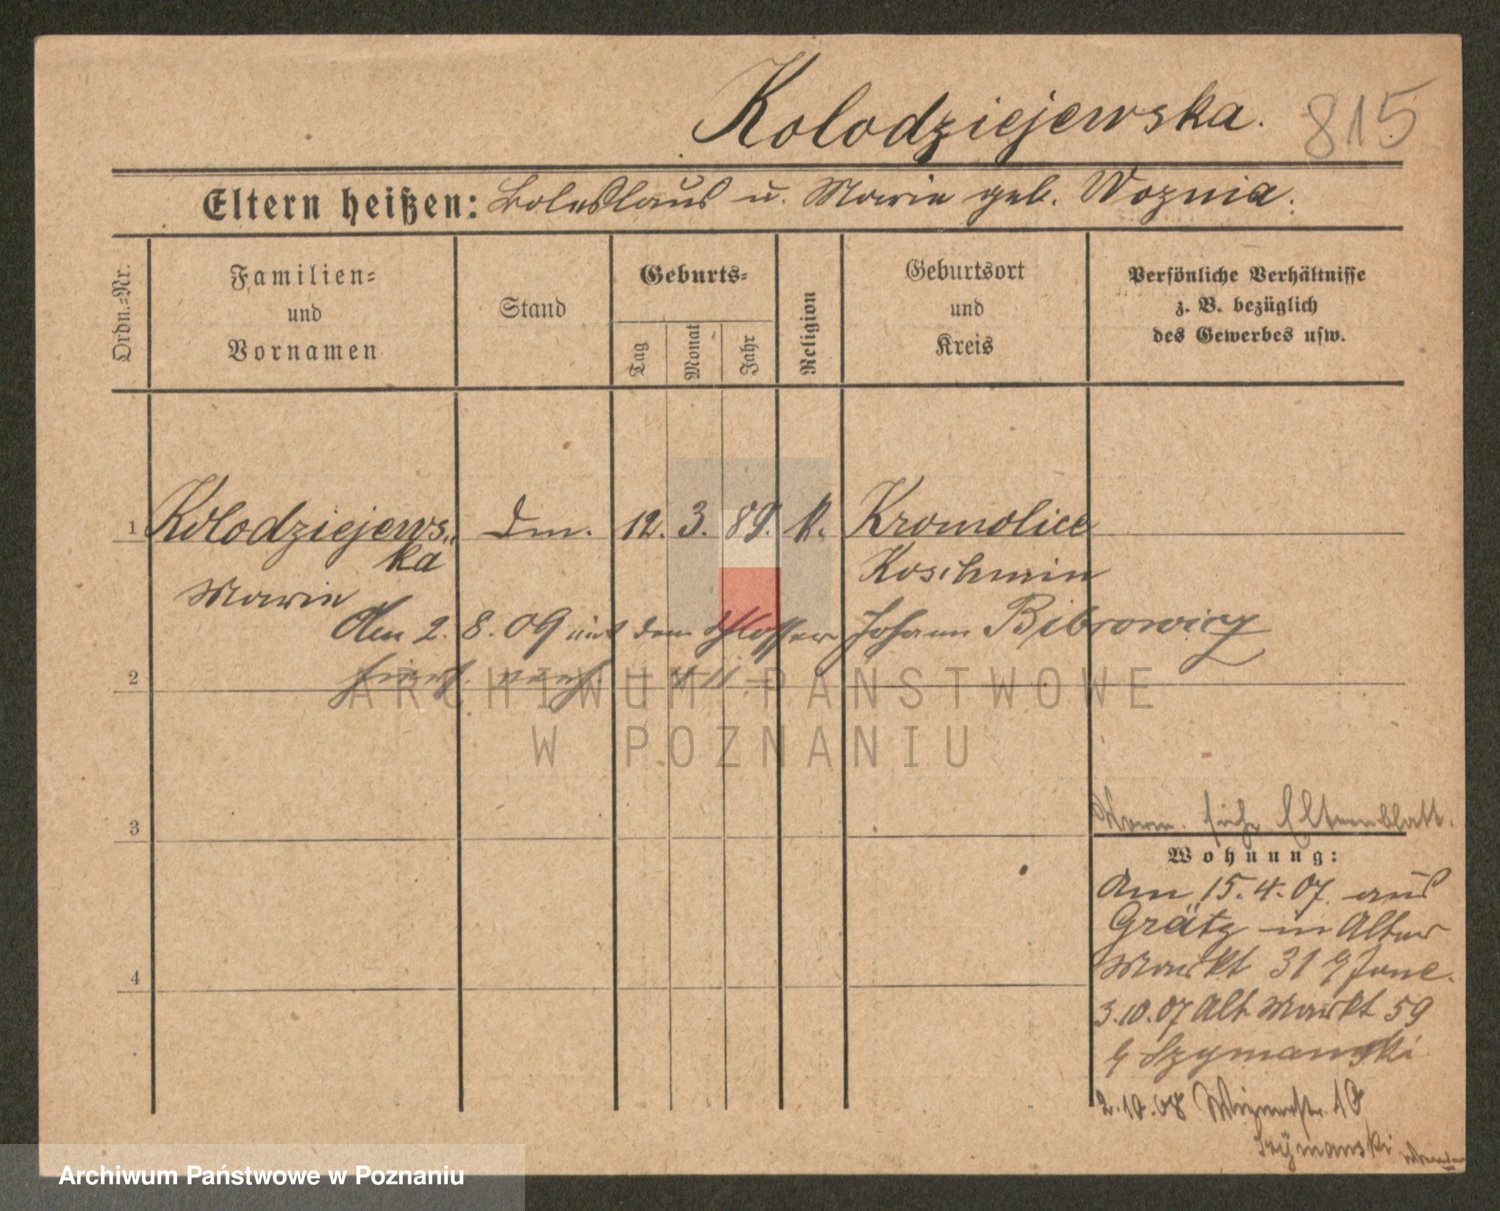 Kolodziejewska. 815
Eltern heißen: Boleslaus u. Marie geb. Woznia.
Ordn.=Nr.
Familien=
und
Vornamen
Stand
Geburts=
Tag
Monat
Jahr
Religion
Geburtsort
und
Kreis
Persönliche Verhältnisse
z. B. bezüglich
des Gewerbes usw.
1 Kolodziejews„ Dm. 12. 3. 89. k. Kromolice
ka Koschmin
Marie
Am 2. 8. 09 mit dem Schlosser Johann Bibrowicz
2 hier verh.
3
4
siehe Elternblatt.
Wohnung:
Am 15.4.07 aus
Grätz in Alter
Markt 31
3.10.07 Alt Markt 59
Szymanski
2.10.08 10
Szymanski
ARCHIWUM PAŃSTWOWE
W POZNANIU
Archiwum Państwowe w Poznaniu